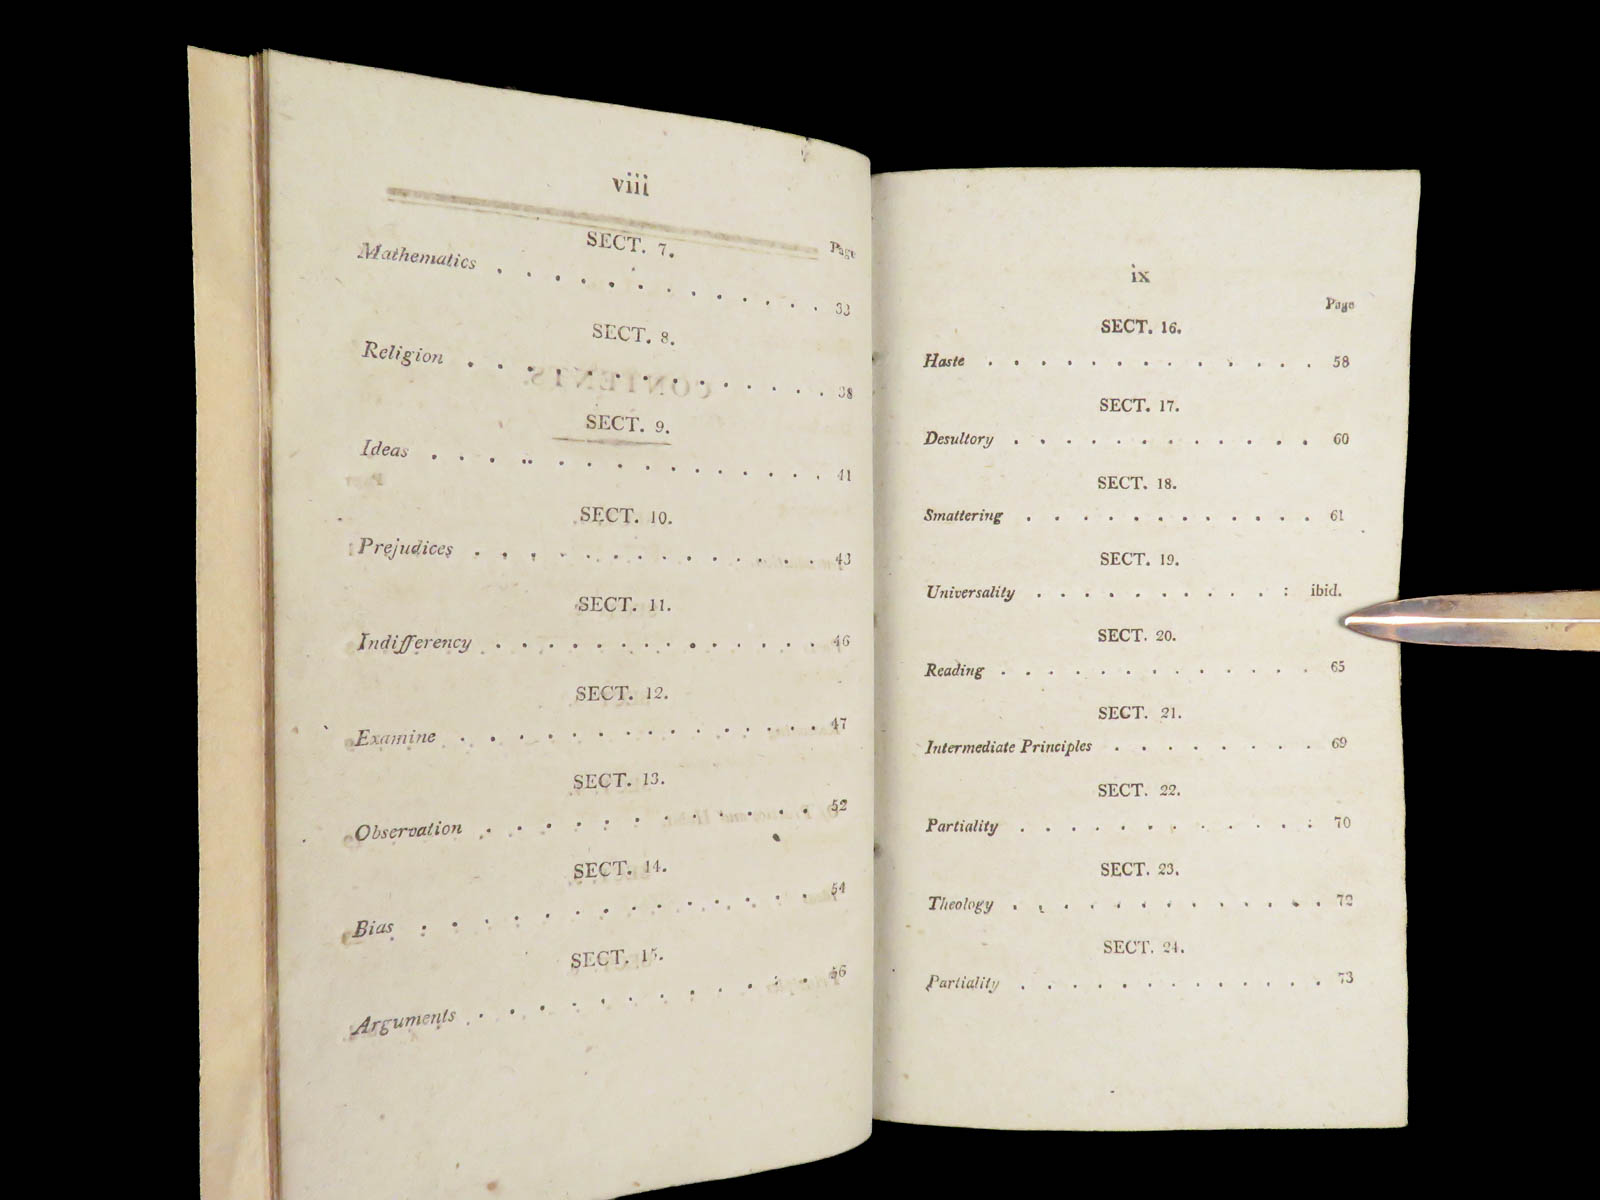 viii
Page
SECT. 7.
Mathematics . . . . . . . . . . . . . 33
SECT. 8.
Religion . . . . . . . . . . . . . . 38
SECT. 9.
Ideas . . . . . . . . . . . . . . . 41
SECT. 10.
Prejudices . . . . . . . . . . . . . 43
SECT. 11.
Indifferency . . . . . . . . . . . . . 46
SECT. 12.
Examine . . . . . . . . . . . . . . 47
SECT. 13.
Observation . . . . . . . . . . . . 52
SECT. 14.
Bias . . . . . . . . . . . . . . 54
SECT. 15.
Arguments . . . . . . . . . . . . 56
ix
Page
SECT. 16.
Haste . . . . . . . . . . . . . 58
SECT. 17.
Desultory . . . . . . . . . . . . 60
SECT. 18.
Smattering . . . . . . . . . . . . 61
SECT. 19.
Universality . . . . . . . . . . : ibid.
SECT. 20.
Reading . . . . . . . . . . . . . 65
SECT. 21.
Intermediate Principles . . . . . . . . 69
SECT. 22.
Partiality . . . . . . . . . . . . : 70
SECT. 23.
Theology . . . . . . . . . . . . . 72
SECT. 24.
Partiality . . . . . . . . . . . . . 73